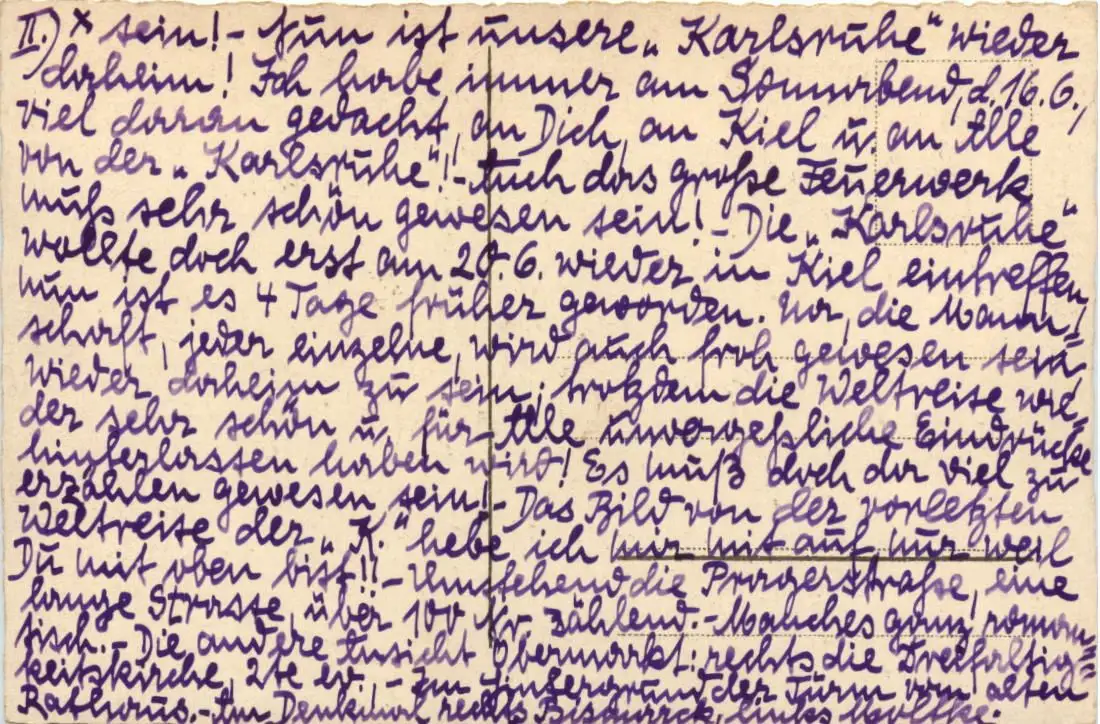 II.) x sein! - Nun ist unsere „Karlsruhe“ wieder
daheim! Ich habe immer am Sonnabend, d. 16.6.,
viel daran gedacht, an Dich, an Kiel u. an Alle
von der „Karlsruhe“!! - Auch das große Feuerwerk
muß sehr schön gewesen sein! - Die „Karlsruhe“
wollte doch erst am 20.6. wieder in Kiel eintreffen,
nun ist es 4 Tage früher geworden. Na, die Mann-
schaft, jeder einzelne, wird auch froh gewesen sein,
wieder daheim zu sein, trotzdem die Weltreise wie-
der sehr schön u. für Alle unvergeßliche Eindrücke
hinterlassen haben wird! Es muß doch da viel zu
erzählen gewesen sein! - Das Bild von der vorletzten
Weltreise der „K.“ hebe ich mir mit auf, nur weil
Du mit oben bist!! - Umstehend die Pragerstraße, eine
lange Strasse, über 100 Nr. zählend. - Manches ganz roman-
tisch. - Die andere Ansicht Obermarkt: rechts die Dreifaltig-
keitskirche, 2te ev., - im Hintergrund der Turm vom alten
Rathaus. - Am Denkmal rechts Bismarck, links Moltke.